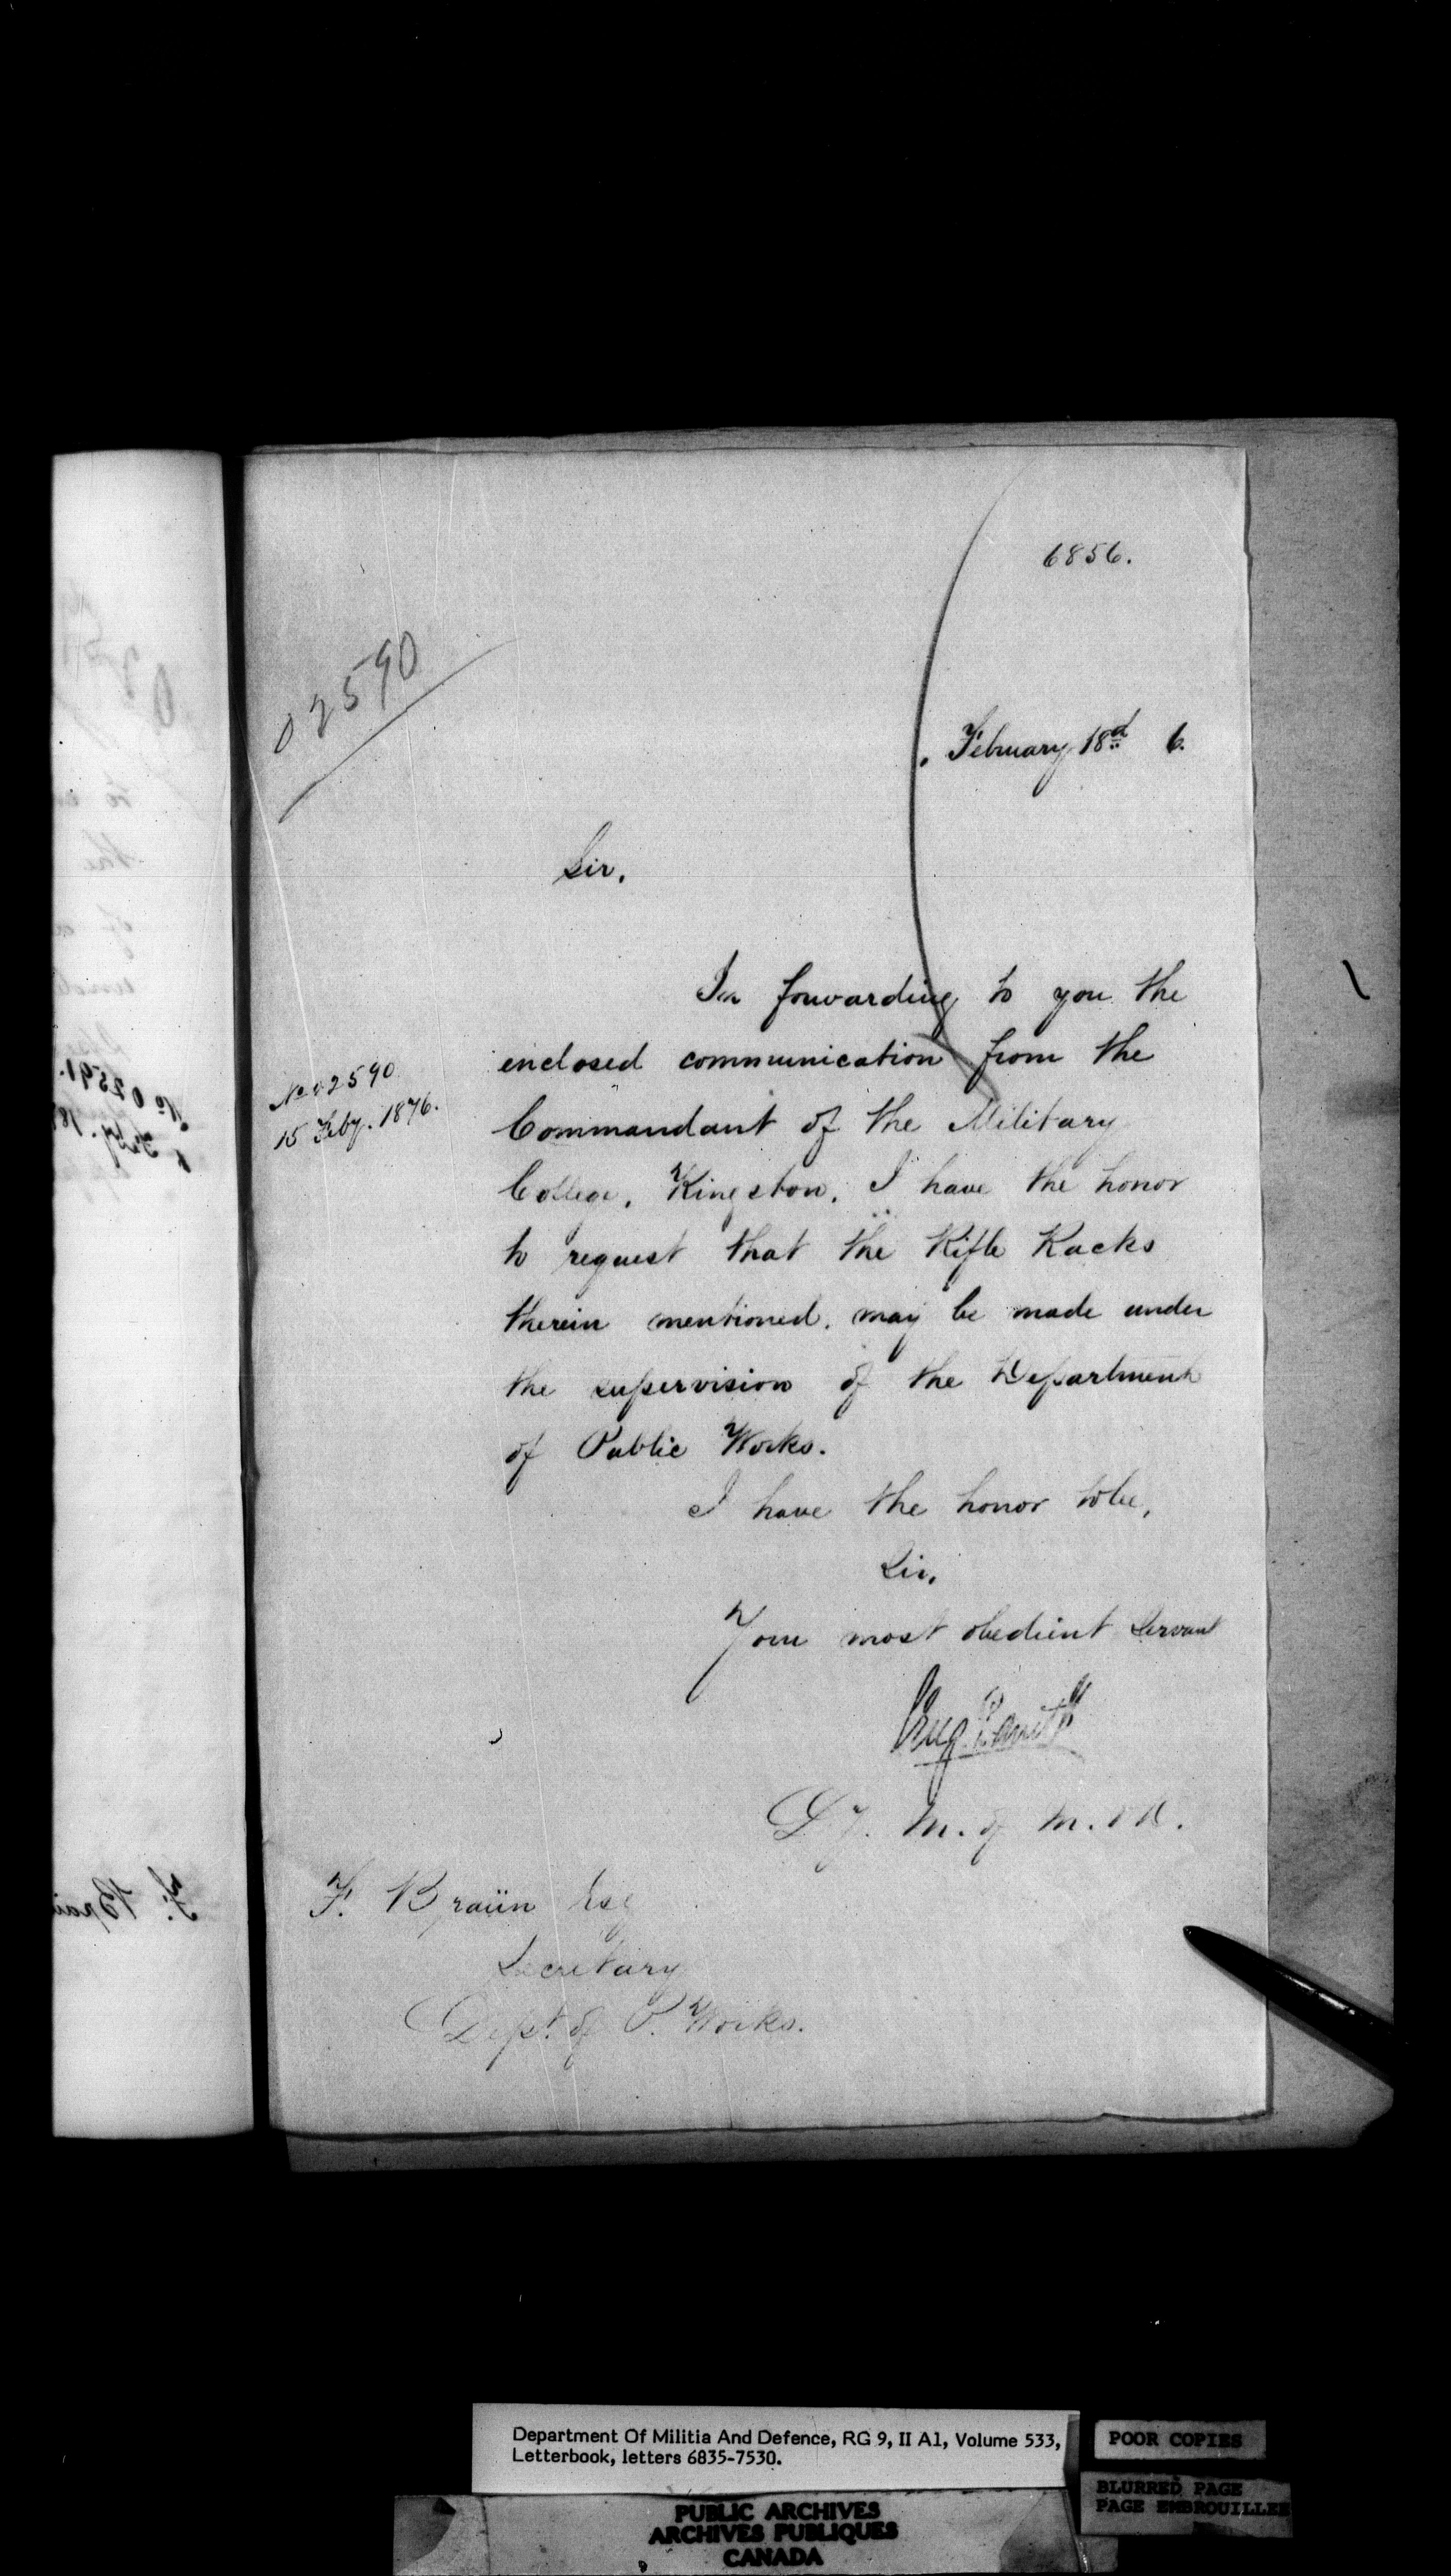 6856.
02590
February 18d 6.
Sir,
In forwarding to you the
No 02590
15 Feby. 1876.
enclosed communication from the
Commandant of the Military
College, Kingston, I have the honor
to request that the Rifle Racks
therein mentioned, may be made under
the supervision of the Department
of Public Works.
I have the honor to be,
Sir,
Your most obedient Servant
Dy. M. of M. & D.
F. Braün Esq
Secretary
Dept. of P. Works.
Department Of Militia And Defence, RG 9, II A1, Volume 533,
Letterbook, letters 6835-7530.
POOR COPIES
BLURRED PAGE
PAGE EMBROUILLEE
PUBLIC ARCHIVES
ARCHIVES PUBLIQUES
CANADA